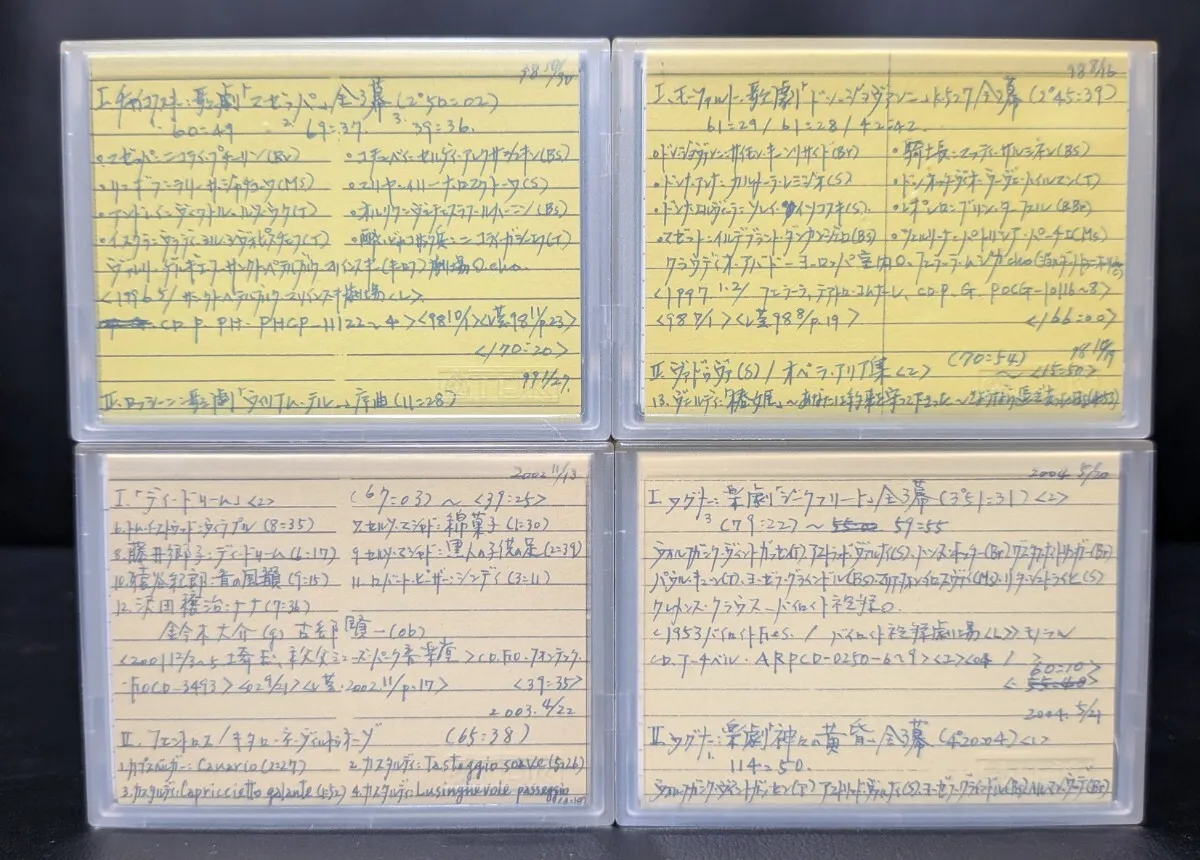 98 10/30
I. チャイコフスキー: 歌劇「マゼッパ」全3幕 (2°50=02)
60=49 2. 69=37. 3. 39=36.
◦マゼッパ=ニコライ・プチーリン(Br) ◦コチュベイ=セルゲイ・アレクサシュキン(Bs)
(MS) ◦マリヤ=イリーナ・ロスクトーワ(S)
◦アンドレイ=ヴィクトル・ルツュク(T) (Bs)
(T) (T)
ヴァレリー・ゲルギエフ-サンクトペテルブルク・マリインスキー(キーロフ)劇場O.cho.
<1996 5/ サンクトペテルブルク・マリインスキー劇場<L>>
CD. P. PH. PHCP-11122~4><98 10/1><レ芸.98 11/p.23>
<170=20>
99 1/27.
II. ロッシーニ: 歌劇「ウィリアム・テル」序曲 (11=28)
98 8/13
I. モーツァルト: 歌劇「ドン・ジョヴァンニ」K.527/全2幕 (2°45=39)
61=29 / 61=28 / 42=42.
◦ドン・ジョヴァンニ=サイモン・キーンリサイド(Br) ◦騎士長=マッティ・サルミネン(BS)
◦ドンナ・アンナ=カルメーラ・レミージオ(S) ◦ドン・オッターヴィオ=ウーヴェ・ハイルマン(T)
◦ドンナ・エルヴィーラ=ソイレ・イソコスキ(S) ◦レポレロ=ブリン・ターフェル(BBr)
◦マゼット=イルデブランド・ダルカンジェロ(BS) ◦ツェルリーナ=パトリシア・パーチェ(MS)
クラウディオ・アバド-ヨーロッパ室内O. フェラーラ・ムジカcho
<1997. 1.2/ フェラーラ, テアトロ・コムナーレ, CD P. G. POCG-10116~8>
<98 7/1><レ芸98 8/p.19> <166=00>
(70=54)
II. (S) / オペラ・アリア集<2> ~<15=50>
13. ヴェルディ: 椿姫
2002 11/13
I.「ディードリーム」<2> (67=03) ~ <39=25>
6. (8=35) 7. セルソ・マシャド: 綿菓子 (1=30)
8. 藤井郷子: ディードリーム (6=17) 9. セルソ・マシャド: 黒人の子供 (2=39)
10. 猿谷紀郎: 音の風韻 (9=15) 11. ロベルト・ビザー: シンディ (3=11)
12. 沢田穣治: ナナ (7=36)
鈴木大介(g) 古部賢一(ob)
<2001 12/3~5 埼玉, 秩父ミューズパーク音楽堂> CD. Fio. フォンテック.
FOCD-3493><02 9/21><レ芸. 2002. 11/p.17> <39=35>
2003. 4/22
II. フエントス / キタローネ・ヴィルトゥオーゾ (65=38)
1. カプスベルガー: Canario (2=27) 2. カスタルディ: Tasteggio soave (5=26)
3. カスタルディ: Capriccietto galante (1=52) 4. カスタルディ: Lusinghevole passeggio
2004 5/20
I. ワグナー: 楽劇「ジークフリート」全3幕 (3°51=31)<2>
3 (79=22) ~ 59=55
ヴォルフガング・ヴィントガッセン(T), アストリッド・ヴァルナイ(S), ハンス・ホッター(Br) グスタフ・ナイトリンガー(Br)
パウル・キューン(T), ヨーゼフ・グラインドル(BS), マリア・フォン・イロスヴァイ(MS), リタ・シュトライヒ(S)
クレメンス・クラウス-バイロイト祝祭O.
<1953 バイロイトFes. / バイロイト祝祭劇場<L>> モノラル
CD. アーチペル. ARPCD-0250-6~9><2><04 / >
60=10>
2004. 5/21
II. ワグナー: 楽劇「神々の黄昏」/全3幕 (4°20=04)<1>
114=50.
ヴォルフガング・ヴィントガッセン(T) アストリッド・ヴァルナイ(S), ヨーゼフ・グラインドル(BS) ヘルマン・ウーデ(Br)
TDK